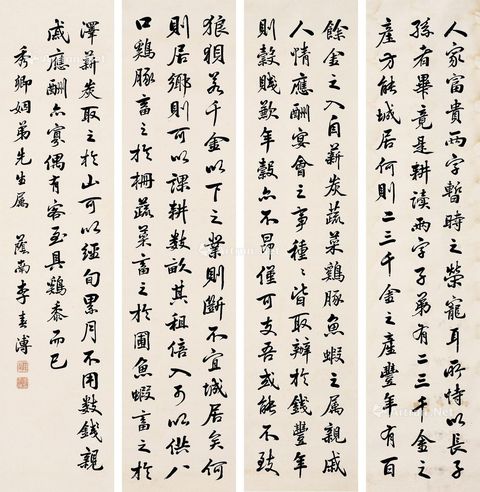 人家富貴兩字暫時之榮寵耳所恃以長子
孫者畢竟是耕讀兩字子弟有二三千金之
產方能城居何則二三千金之產豐年有百
餘金之入自薪炭蔬菜鷄豚魚蝦之属親戚
人情應酬宴會之事種種皆取辦於錢豐年
則穀賤歉年穀亦不昂僅可支吾或能不致
狼狽若千金以下之業則斷不宜城居矣何
則居鄉則可以課耕数畝其租倍入可以供八
口鷄豚畜之於柵蔬菜畜之於圃魚蝦畜之於
澤薪炭取之於山可以經旬累月不用数錢親
戚應酬亦寡偶有客至具鷄黍而已
秀卿姻弟先生属 蔭南李春溥